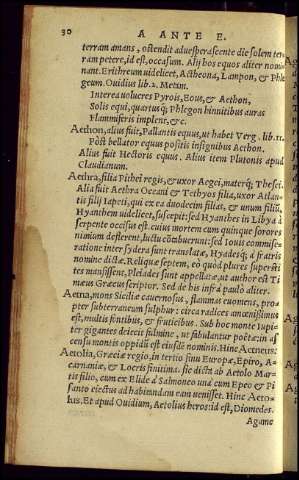 30 A ANTE E.
terram amans, ostendit aduesperascente die solem ter
ram petere, id est, occasum. Alij hos equos aliter nomi
nant. Erithreum uidelicet, Actheona, Lampon, & Phle
geum. Ouidius lib. 2. Metam.
Interea uolucres Pyrois, Eous, & Aethon,
Solis equi, quartusq́; Phlegon hinnitibus auras
Flammiferis implent, &c.
Aethon, alius fuit, Pallantis equus, ut habet Verg. lib. 11.
Pòst bellator equus positis insignibus Aethon.
Alius fuit Hectoris equus. Alius item Plutonis apud
Claudianum.
Aethra, filia Pithei regis, & uxor Aegei, materq́; Thesei.
Alia fuit Aethra Oceani & Tethyos filia, uxor Atlan
tis filij Iapeti, qui ex ea duodecim filias, & unum filiũ,
Hyanthem uidelicet, suscepit: sed Hyanthes in Libya à
serpente occisus est. cuius mortem cum quinque sorores
nimium deflerent, luctu cōtabuerunt: sed Iouis commise-
ratione inter sydera sunt translatæ, Hyadesq́; à fratris
nomine dictæ. Reliquæ septem, eò quòd plures superstites
mansissent, Pleiades sunt appellatæ, ut author est Ti
mæus Græcus scriptor. Sed de his infrà paulò aliter.
Aetna, mons Siciliæ cauernosus, flammas euomens, pro-
pter subterraneum sulphur: circa radices amœnissimus
est, multis fontibus, & fruticibus. Sub hoc monte Iupi-
ter gigantes deiecit fulmine, ut fabulantur poëtæ: in as
censu montis oppidũ est eiusdē nominis. Hinc Aetneus.
Aetolia, Græciæ regio, in tertio sinu Europæ, Epiro, A-
carnaniæ, & Locris finitima. sic dicta ab Aetolo Mar-
tis filio, cum ex Elide à Salmoneo unà cum Epeo & Pi
santo eiectus ad habitandum eam uenisset. Hinc Aeto-
lus. Et apud Ouidium, Aetolius heros: id est, Diomedes.
Agame